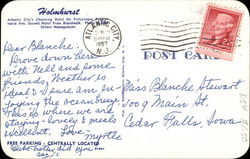 Holmhurst
Atlantic City's Charming Hotel On Pennsylvania
Ave. Second Hotel From Boardwalk.
Management.
ATLANTIC CITY
1957
N.J.
POST CARD
Dear Blanche:
Drove down here
with Nell and some
friends. Weather is
ideal & I sure am en-
joying the ocean breeze.
This is where we are
staying - lovely & meals
excellent. Love,
Myrtle
Miss Blanche Stewart
709 Main St.
Cedar Falls Iowa
FREE PARKING - CENTRALLY LOCATED